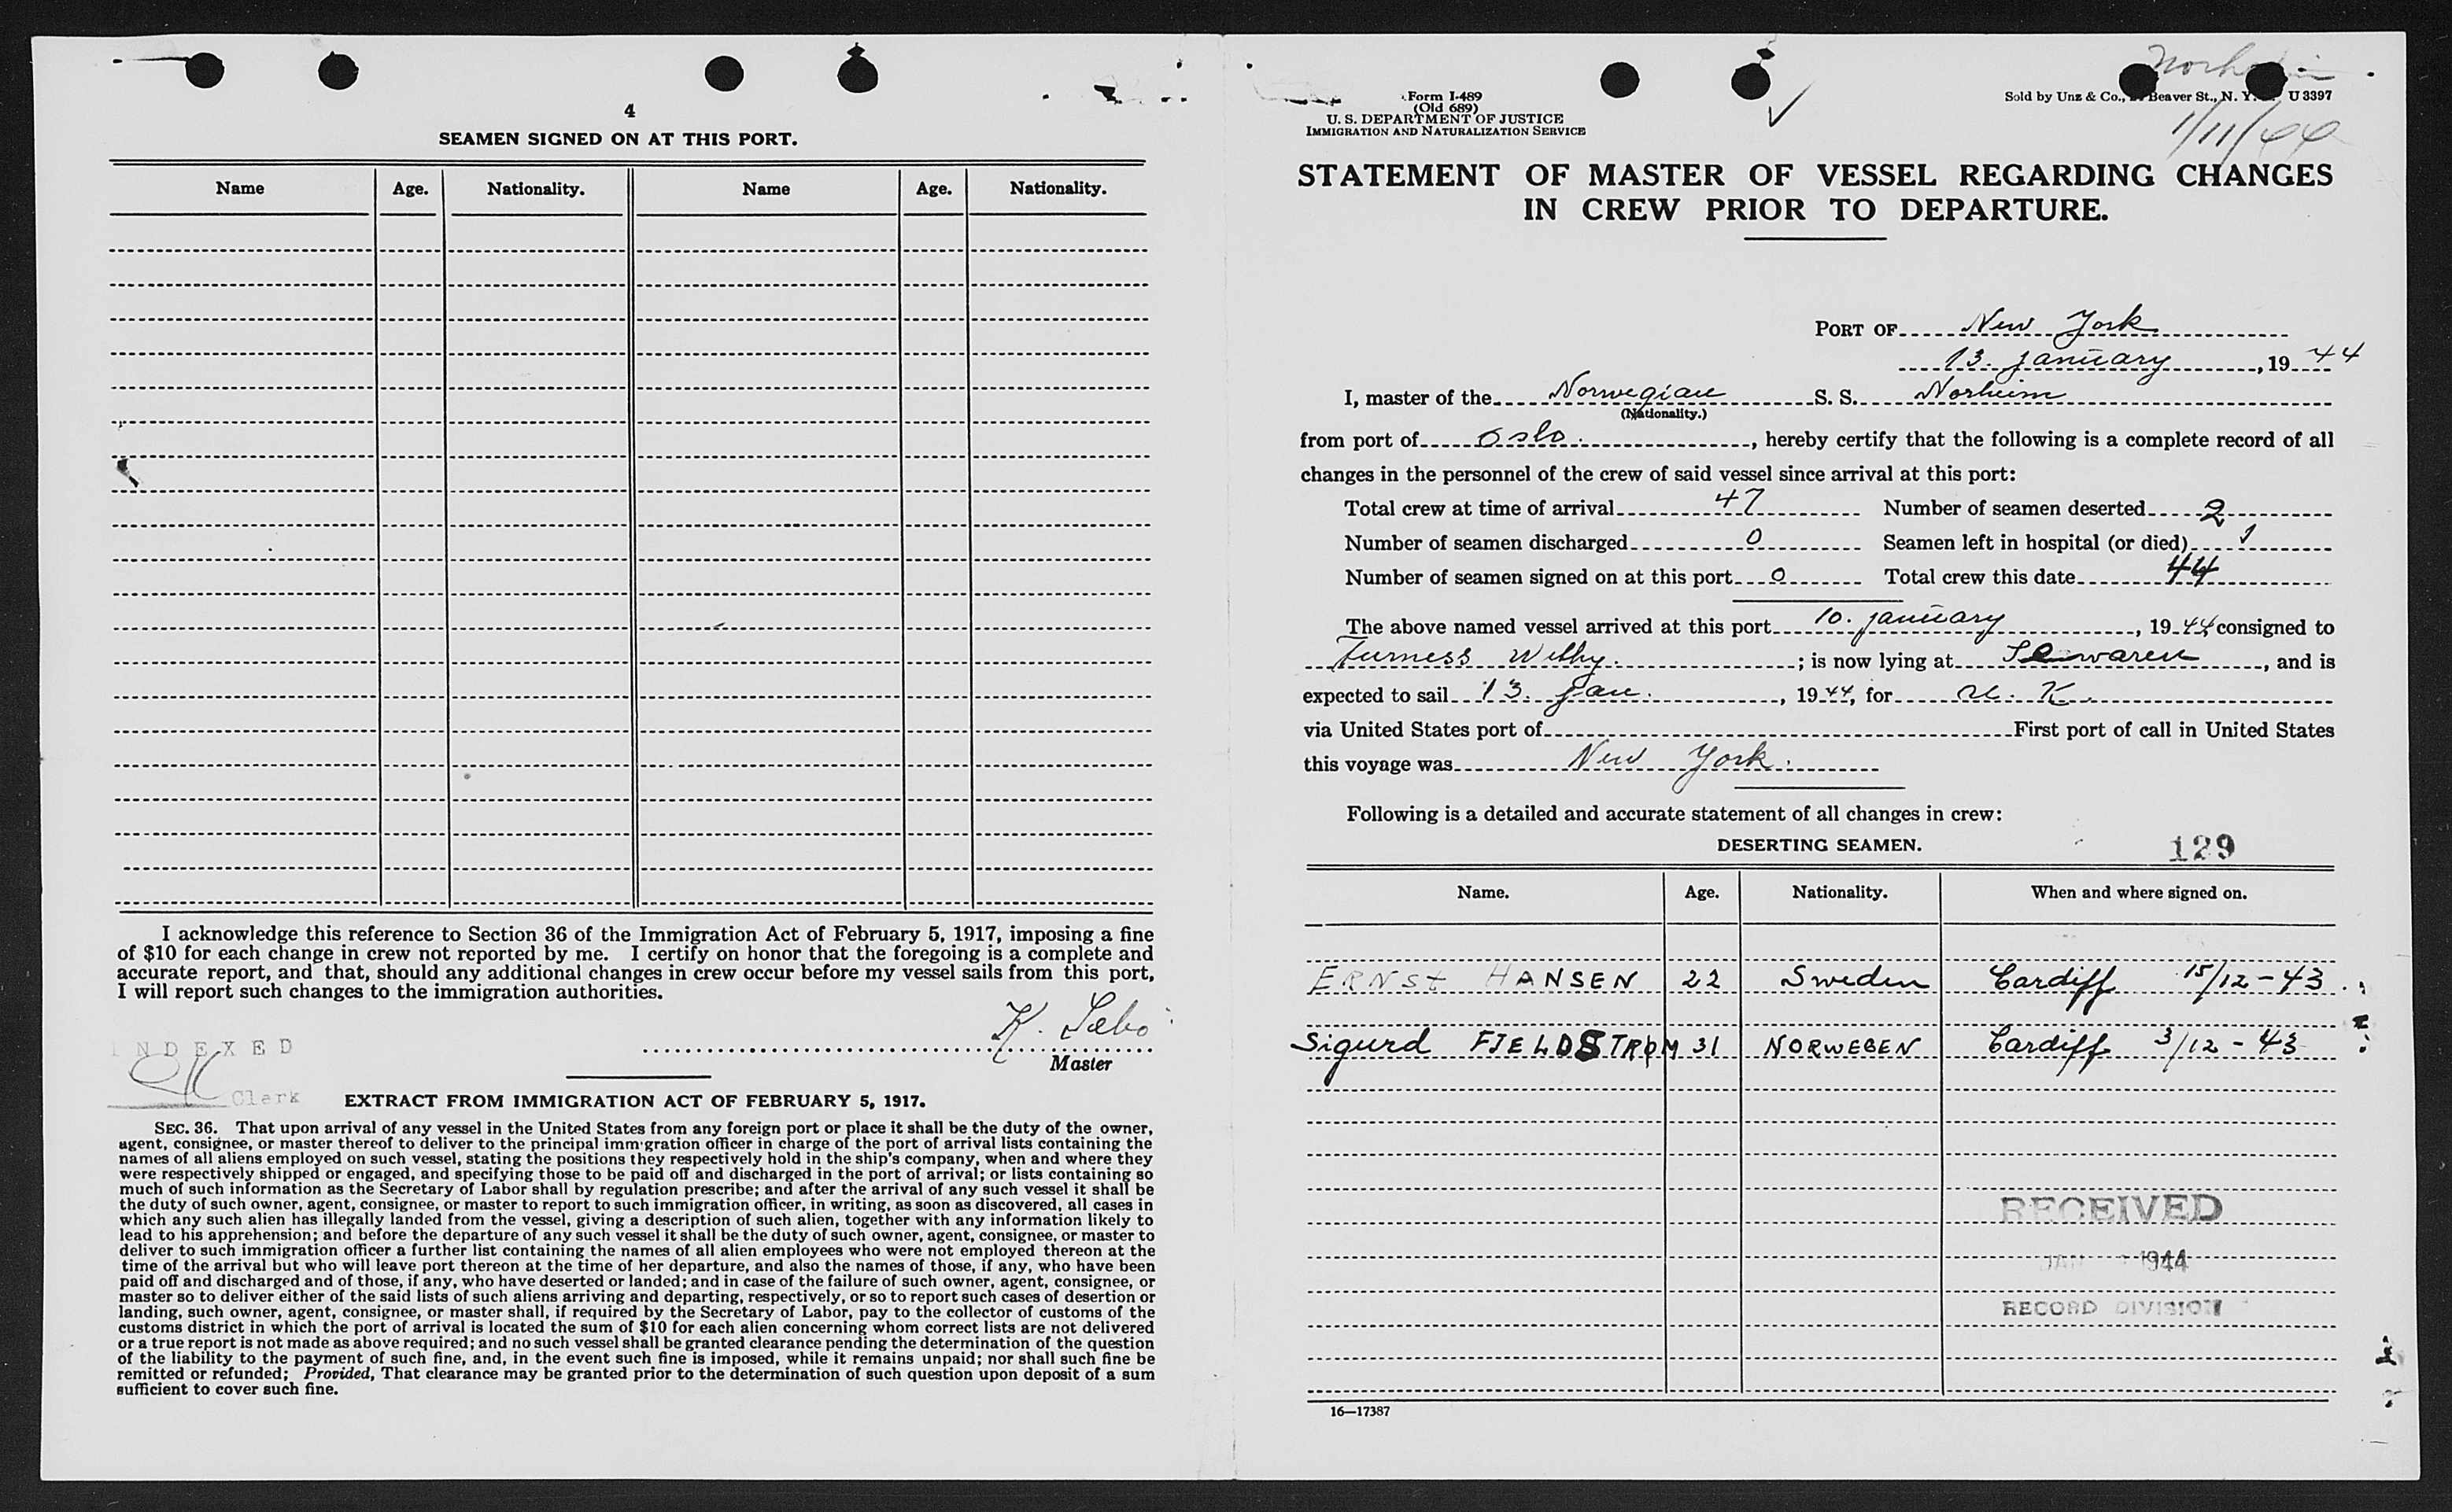 4
SEAMEN SIGNED ON AT THIS PORT.
Name Age. Nationality. Name Age. Nationality.
I acknowledge this reference to Section 36 of the Immigration Act of February 5, 1917, imposing a fine
of $10 for each change in crew not reported by me. I certify on honor that the foregoing is a complete and
accurate report, and that, should any additional changes in crew occur before my vessel sails from this port,
I will report such changes to the immigration authorities.
K. Sæbo
Master
INDEXED
Clerk
EXTRACT FROM IMMIGRATION ACT OF FEBRUARY 5, 1917.
SEC. 36. That upon arrival of any vessel in the United States from any foreign port or place it shall be the duty of the owner,
agent, consignee, or master thereof to deliver to the principal immigration officer in charge of the port of arrival lists containing the
names of all aliens employed on such vessel, stating the positions they respectively hold in the ship's company, when and where they
were respectively shipped or engaged, and specifying those to be paid off and discharged in the port of arrival; or lists containing so
much of such information as the Secretary of Labor shall by regulation prescribe; and after the arrival of any such vessel it shall be
the duty of such owner, agent, consignee, or master to report to such immigration officer, in writing, as soon as discovered, all cases in
which any such alien has illegally landed from the vessel, giving a description of such alien, together with any information likely to
lead to his apprehension; and before the departure of any such vessel it shall be the duty of such owner, agent, consignee, or master to
deliver to such immigration officer a further list containing the names of all alien employees who were not employed thereon at the
time of the arrival but who will leave port thereon at the time of her departure, and also the names of those, if any, who have been
paid off and discharged and of those, if any, who have deserted or landed; and in case of the failure of such owner, agent, consignee, or
master so to deliver either of the said lists of such aliens arriving and departing, respectively, or so to report such cases of desertion or
landing, such owner, agent, consignee, or master shall, if required by the Secretary of Labor, pay to the collector of customs of the
customs district in which the port of arrival is located the sum of $10 for each alien concerning whom correct lists are not delivered
or a true report is not made as above required; and no such vessel shall be granted clearance pending the determination of the question
of the liability to the payment of such fine, and, in the event such fine is imposed, while it remains unpaid; nor shall such fine be
remitted or refunded; Provided, That clearance may be granted prior to the determination of such question upon deposit of a sum
sufficient to cover such fine.
Norheim
1/11/44
Form I-489
(Old 689)
U. S. DEPARTMENT OF JUSTICE
IMMIGRATION AND NATURALIZATION SERVICE
Sold by Unz & Co., Beaver St., N. Y. U 3397
STATEMENT OF MASTER OF VESSEL REGARDING CHANGES
IN CREW PRIOR TO DEPARTURE.
PORT OF New York
13. january, 19 44
I, master of the Norwegian S. S. Norheim
(Nationality.)
from port of Oslo., hereby certify that the following is a complete record of all
changes in the personnel of the crew of said vessel since arrival at this port:
Total crew at time of arrival 47 Number of seamen deserted 2
Number of seamen discharged 0 Seamen left in hospital (or died) 1
Number of seamen signed on at this port 0 Total crew this date 44
The above named vessel arrived at this port 10. january, 19 44 consigned to
Furness Withy.; is now lying at Sewaren, and is
expected to sail 13. jan., 19 44, for U. K.
via United States port of First port of call in United States
this voyage was New York.
Following is a detailed and accurate statement of all changes in crew:
DESERTING SEAMEN. 129
Name. Age. Nationality. When and where signed on.
ERNSt HANSEN 22 Sweden Cardiff 15/12-43
Sigurd FJELDSTRØM 31 NORWEGEN Cardiff 3/12-43
RECEIVED
JAN 1944
RECORD DIVISION
16—17387